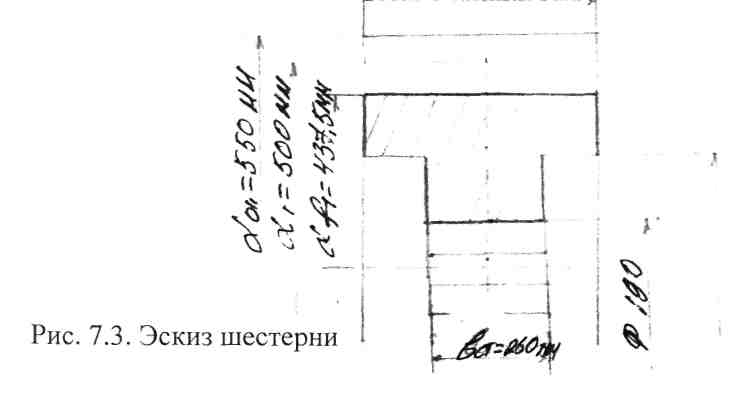 dа1=550 мм
d1=500 мм
df1=437,5мм
Ф 190
bст=260 мм
Рис. 7.3. Эскиз шестерни